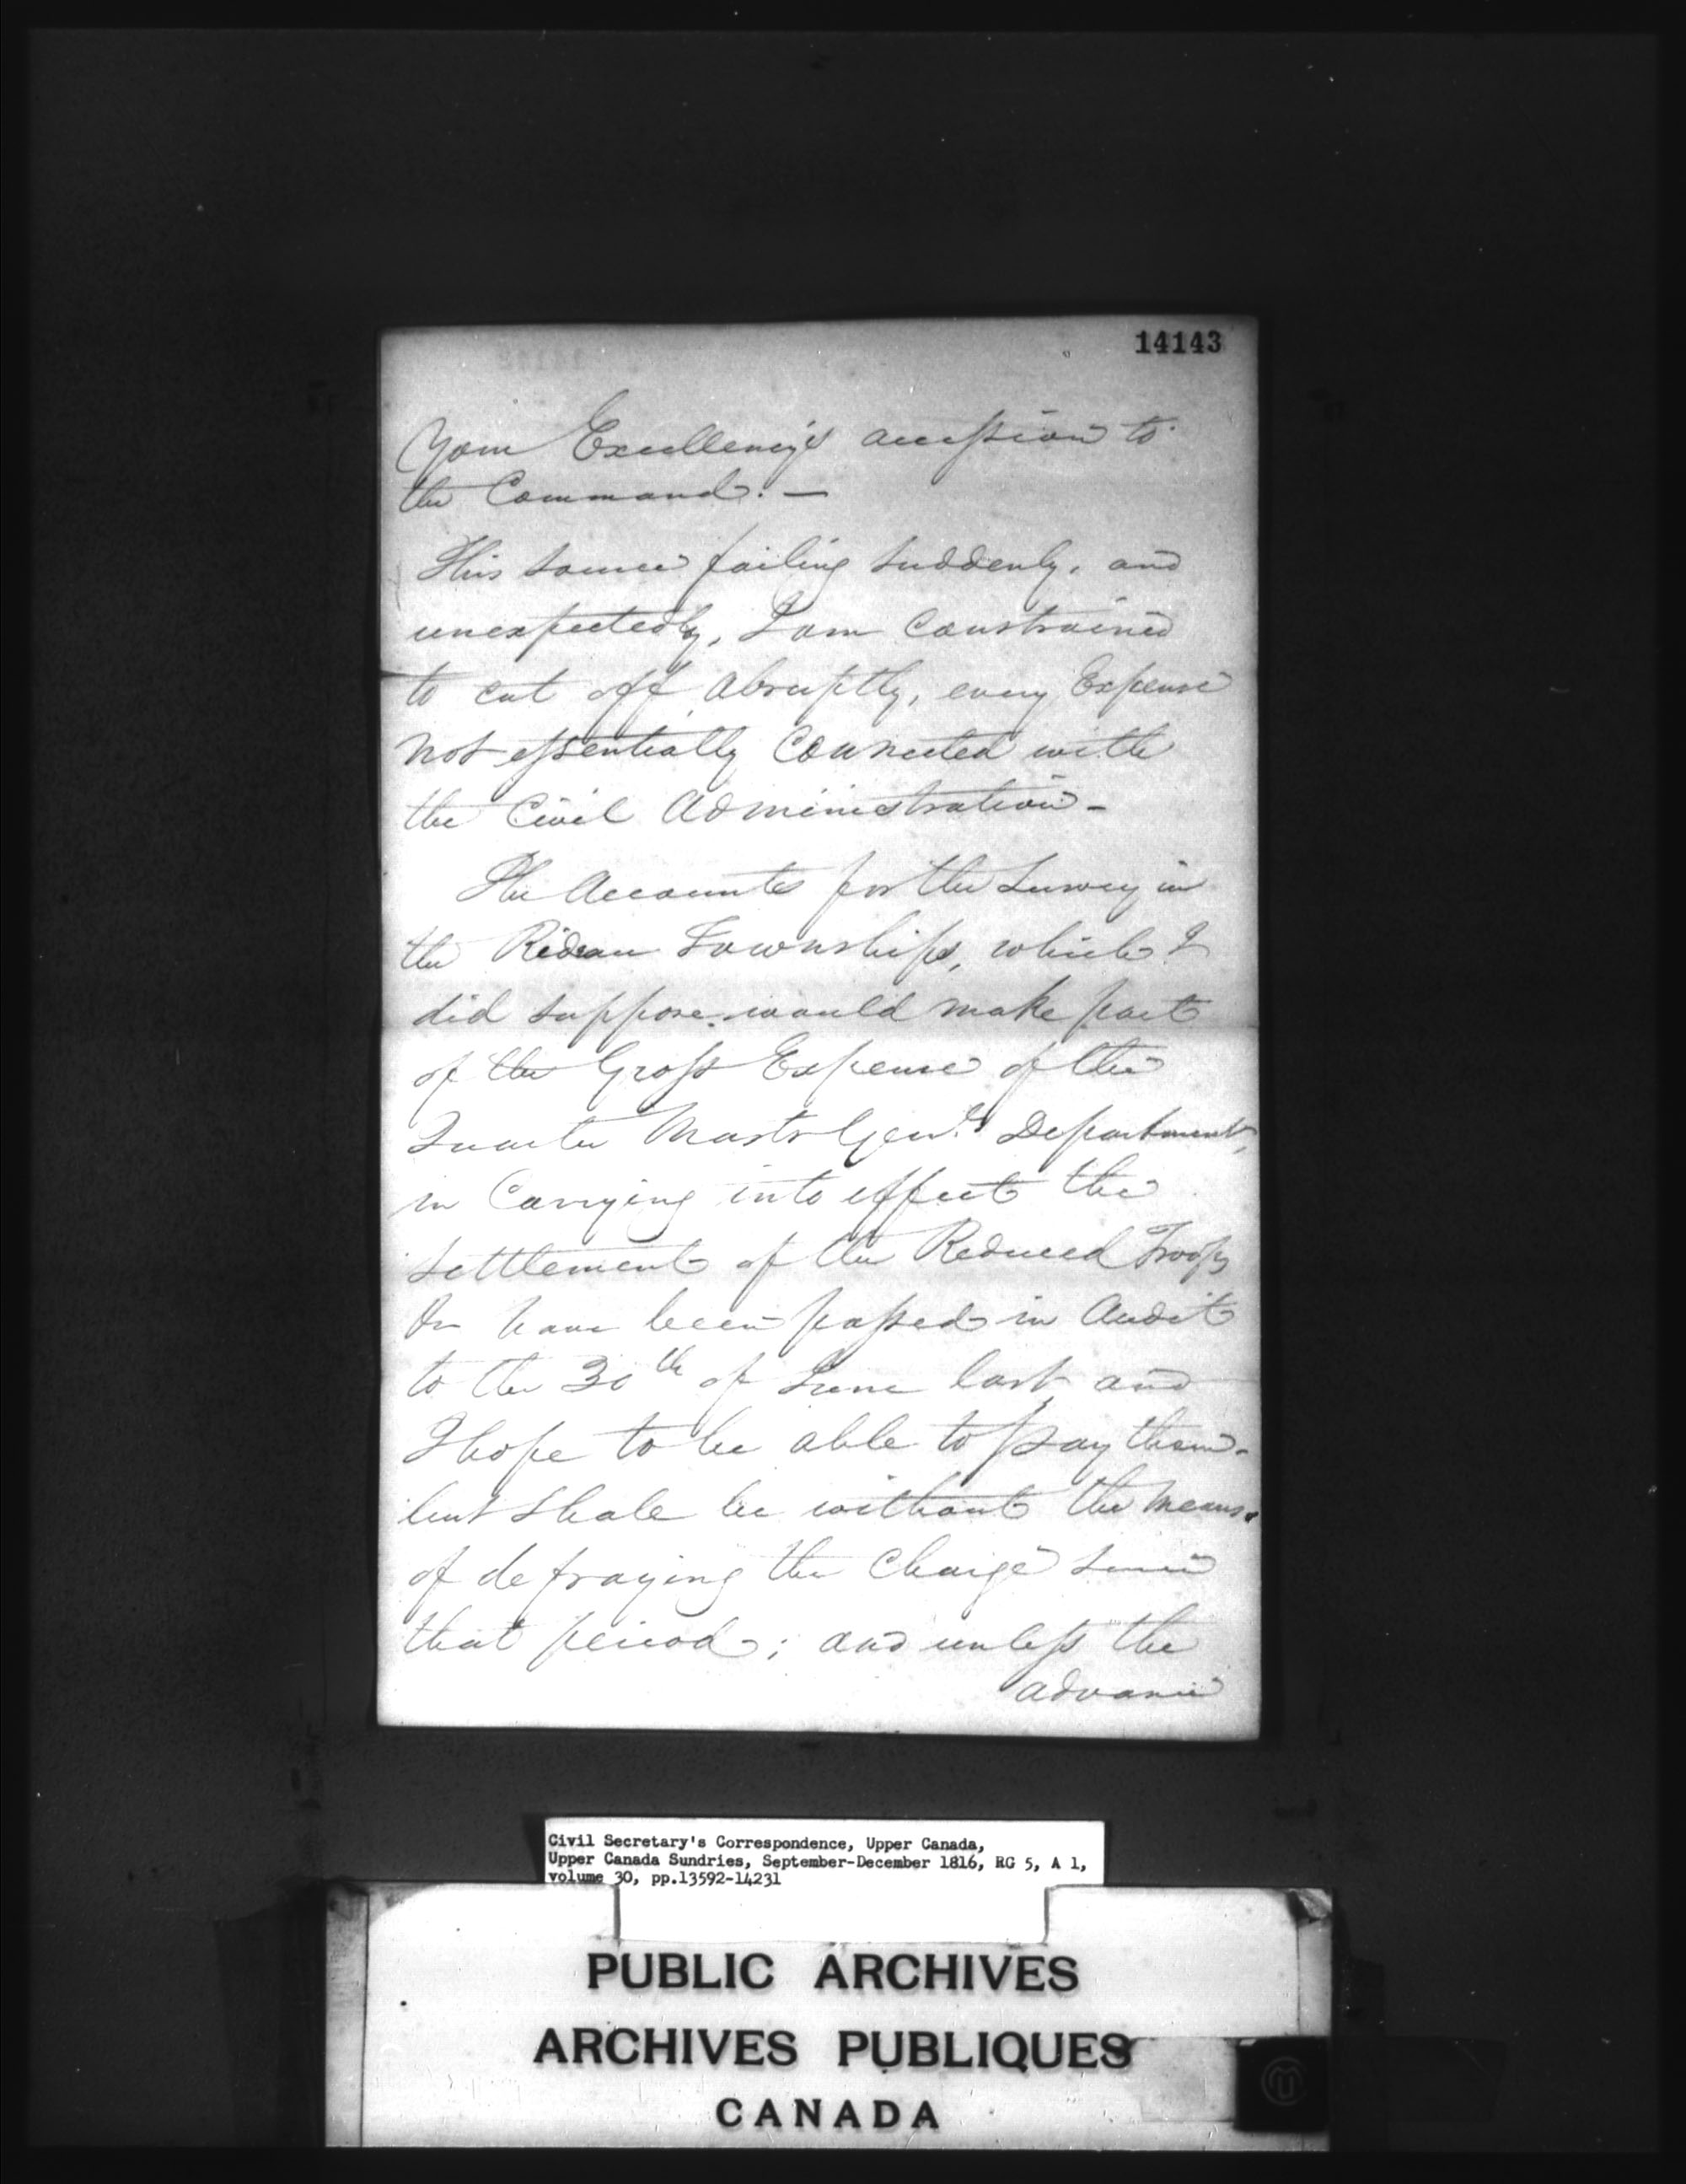 14143
Your Excellency's accession to
the Command. —
This source failing suddenly, and
unexpectedly, I am constrained
to cut off abruptly, every Expense
not essentially Connected with
the Civil Administration -
The Accounts for the Survey in
the Rideau Townships, which I
did suppose would make part
of the Gross Expense of the
Quarter Mastr Genls Department,
in Carrying into effect the
settlement of the Reduced Troops
have been passed in Audit
to the 30th of June last, and
I hope to be able to pay them -
but shale be without the means
of defraying the Charge since
that period; and unless the
advance
Civil Secretary's Correspondence, Upper Canada,
Upper Canada Sundries, September-December 1816, RG 5, A 1,
volume 30, pp.13592-14231
PUBLIC ARCHIVES
ARCHIVES PUBLIQUES
CANADA